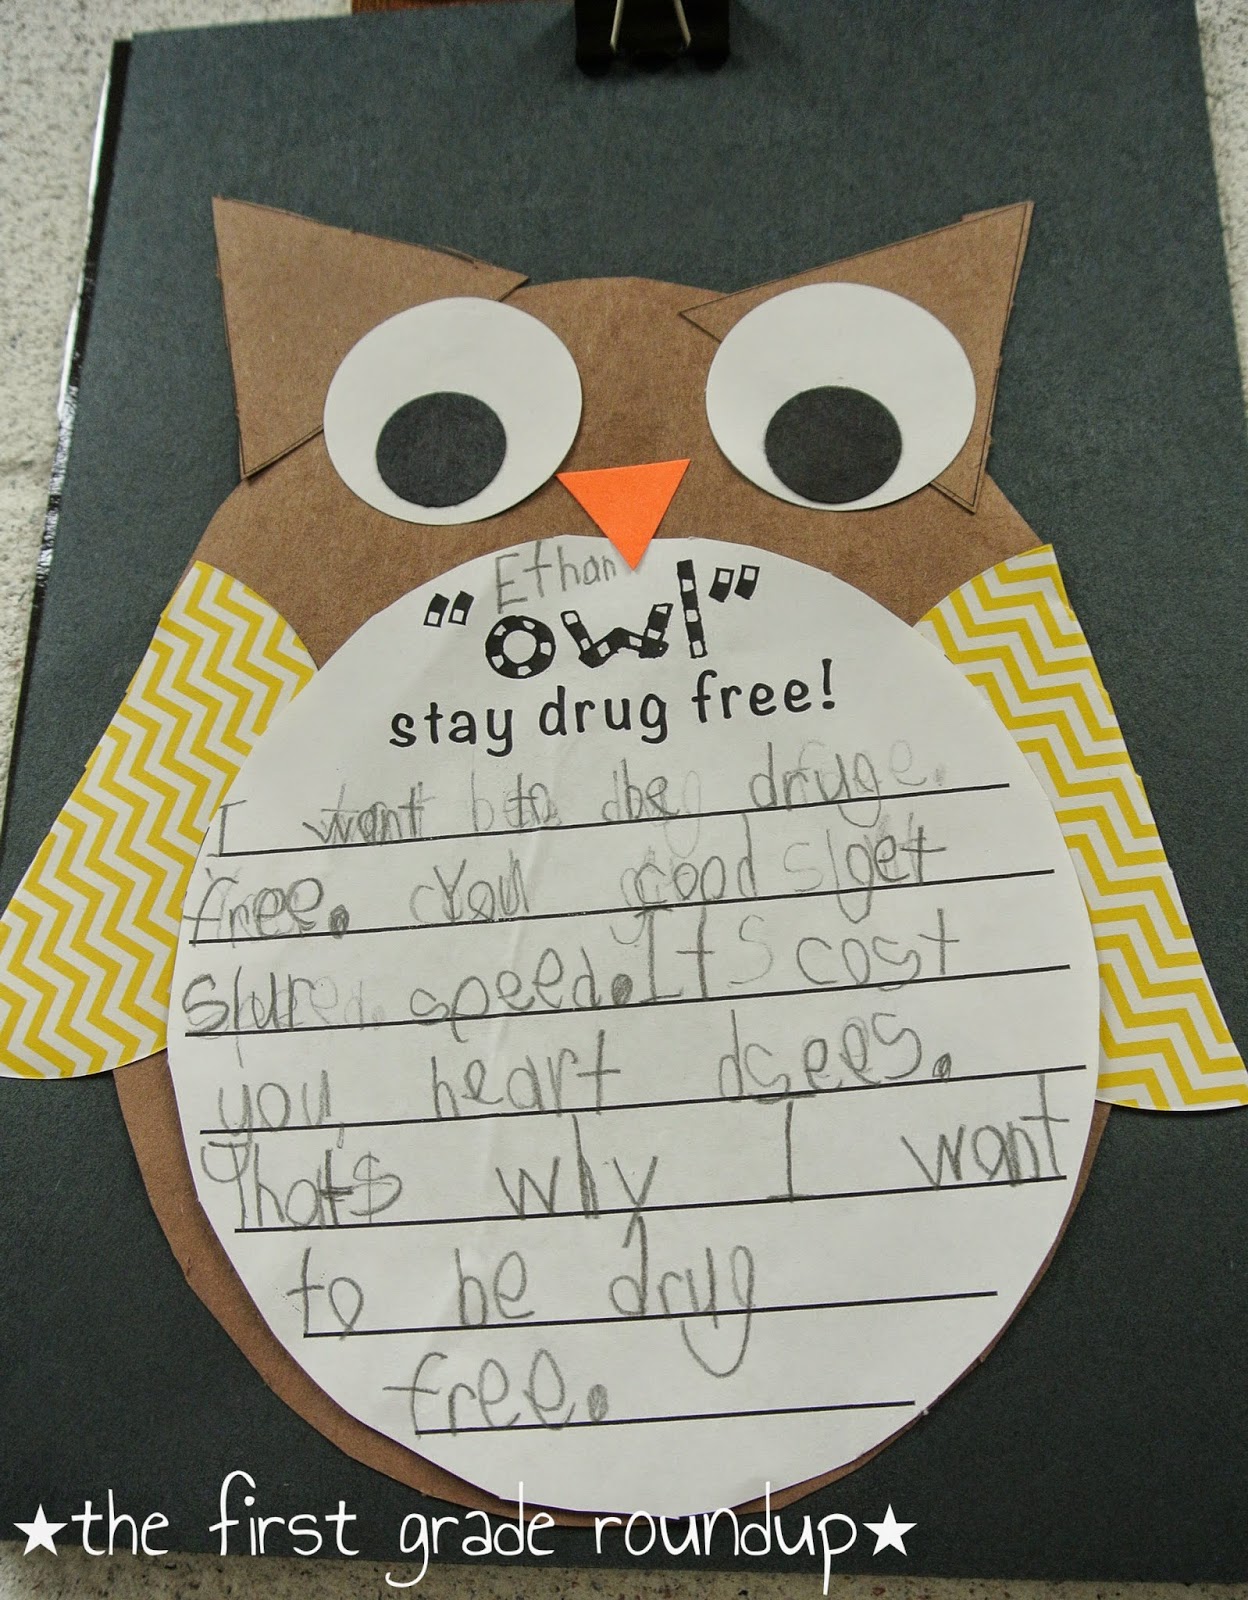 Ethan
"owl"
stay drug free!
I want to be druge
free. You good get
slured speed. Its cost
you, heart dsees.
Thats why I want
to be drug
free.
★the first grade roundup★